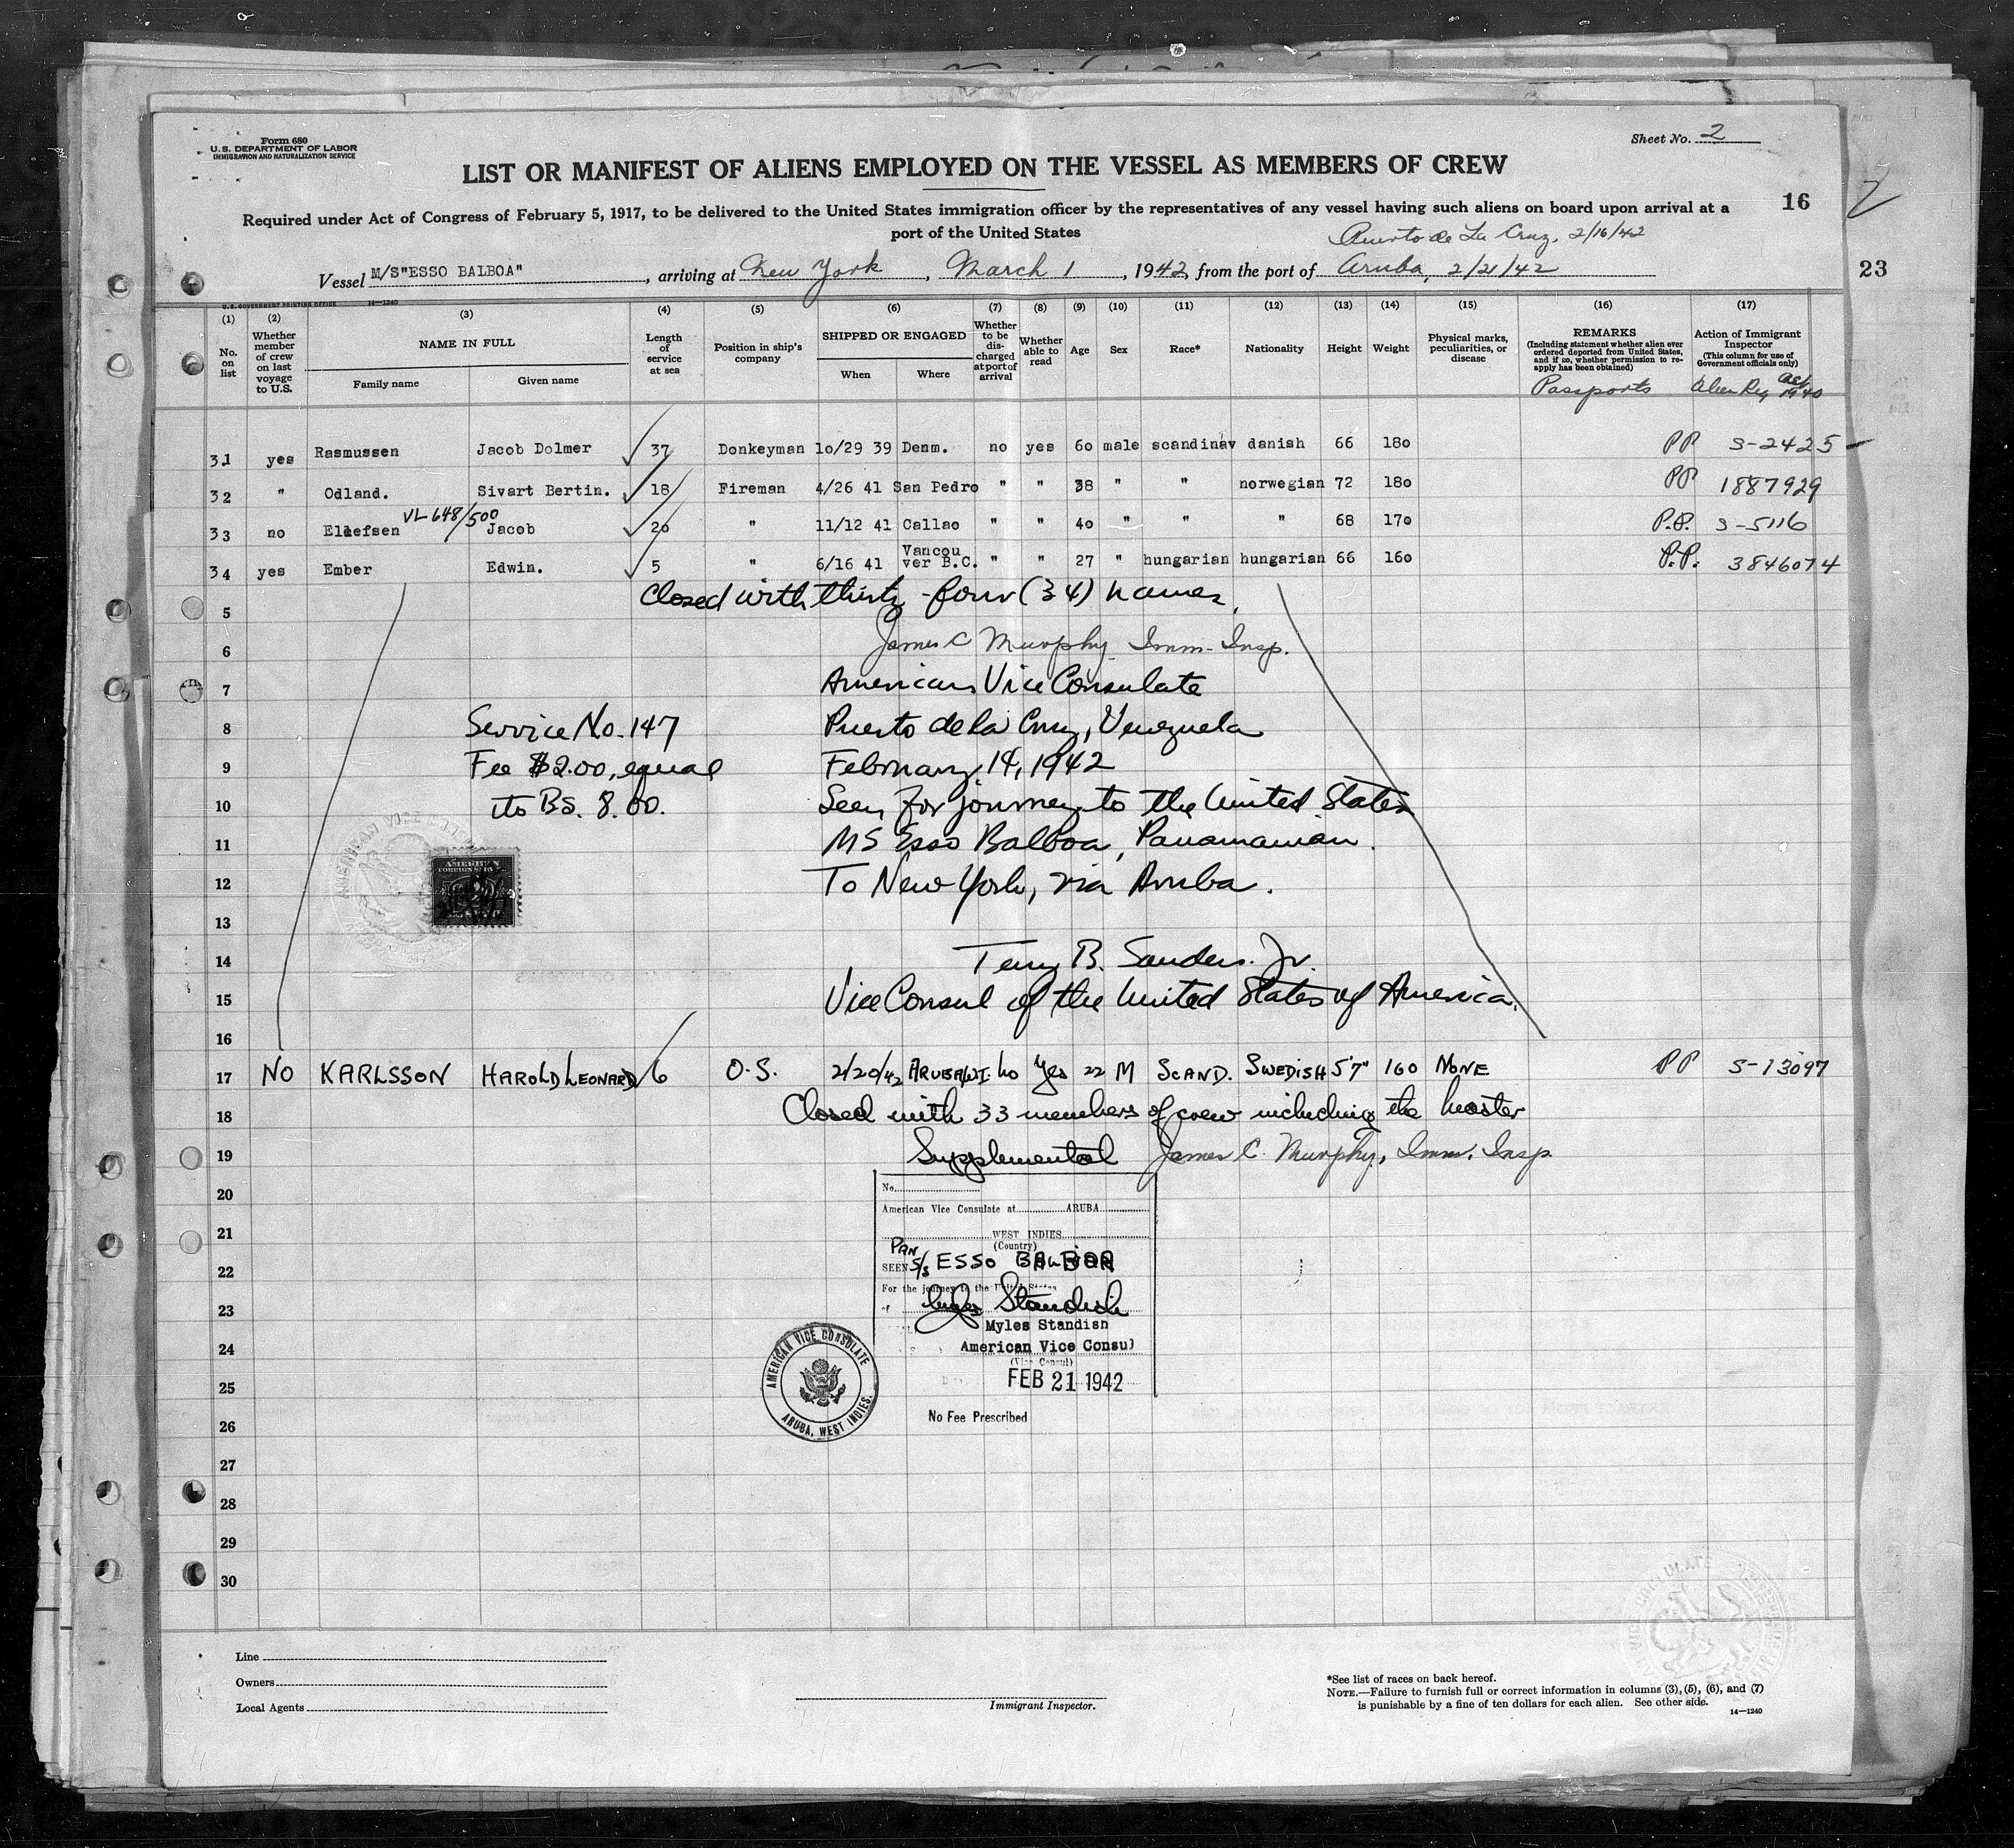 Form 680
U.S. DEPARTMENT OF LABOR
IMMIGRATION AND NATURALIZATION SERVICE
Sheet No. 2
LIST OR MANIFEST OF ALIENS EMPLOYED ON THE VESSEL AS MEMBERS OF CREW
16
2
Required under Act of Congress of February 5, 1917, to be delivered to the United States immigration officer by the representatives of any vessel having such aliens on board upon arrival at a
port of the United States
Puerto de La Cruz, 2/16/42
Vessel M/S"ESSO BALBOA", arriving at New York, March 1, 1942, from the port of Aruba, 2/21/42
23
U.S. GOVERNMENT PRINTING OFFICE 14—1240
(1) No. on list
(2) Whether member of crew on last voyage to U.S.
(3) NAME IN FULL
Family name Given name
(4) Length of service at sea
(5) Position in ship's company
(6) SHIPPED OR ENGAGED
When Where
(7) Whether to be discharged at port of arrival
(8) Whether able to read
(9) Age
(10) Sex
(11) Race*
(12) Nationality
(13) Height
(14) Weight
(15) Physical marks, peculiarities, or disease
(16) REMARKS
(Including statement whether alien ever ordered deported from United States, and if so, whether permission to reapply has been obtained)
Passports
(17) Action of Immigrant Inspector
(This column for use of Government officials only)
Alien Reg Act 1940
31 yes Rasmussen Jacob Dolmer 37 Donkeyman 10/29 39 Denm. no yes 60 male scandinav danish 66 180 PP S-2425
32 " Odland. Sivart Bertin. 18 Fireman 4/26 41 San Pedro " " 38 " " norwegian 72 180 PP 1887929
VL 648/500
33 no Ellefsen Jacob 20 " 11/12 41 Callao " " 40 " " " 68 170 P.P. S-5116
34 yes Ember Edwin. 5 " 6/16 41 Vancouver B.C. " " 27 " hungarian hungarian 66 160 P.P. 3846074
5 Closed with thirty-four (34) names,
6 James C Murphy Imm-Insp.
7 American Vice Consulate
8 Service No. 147 Puerto de la Cruz, Venezuela
9 Fee $2.00, equal February 14, 1942
10 to Bs. 8.00. Seen for journey to the United States
11 MS Esso Balboa, Panamanian.
12 To New York, via Aruba.
13
14 Terry B. Sanders. Jr.
15 Vice Consul of the United States of America.
16
AMERICAN VICE CONSU
AMERICAN
FOREIGN
17 NO KARLSSON HAROLD LEONARD 6 O.S. 2/20/42 ARUBA W.I. no Yes 22 M SCAND. SWEDISH 5'7" 160 NONE PP S-13097
18 Closed with 33 members of crew including the master
19 Supplemental James C. Murphy, Imm. Insp.
20 No.
American Vice Consulate at ARUBA
21 WEST INDIES
(Country)
PAN
22 SEEN S/S ESSO BALBOA
For the journey to the United States
23 Myles Standish
Myles Standish
24 American Vice Consul
(Vice Consul)
25 FEB 21 1942
AMERICAN VICE CONSULATE
ARUBA, WEST INDIES.
26 No Fee Prescribed
27
28
29
30
Line
Owners
Local Agents
Immigrant Inspector.
*See list of races on back hereof.
NOTE.—Failure to furnish full or correct information in columns (3), (5), (6), and (7)
is punishable by a fine of ten dollars for each alien. See other side.
14—1240